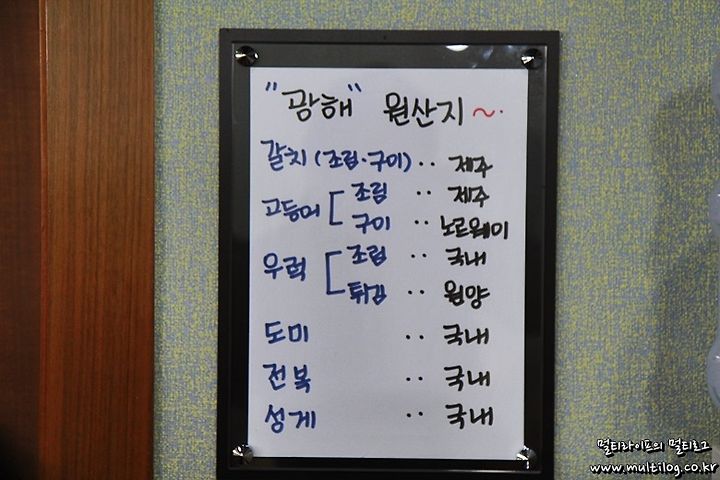 "광해" 원산지~.
갈치 (조림·구이) ·· 제주
고등어 [ 조림 ·· 제주
구이 ·· 노르웨이
우럭 [ 조림 ·· 국내
튀김 ·· 원양
도미 ·· 국내
전복 ·· 국내
성게 ·· 국내
멀티라이프의 멀티로그
www.multilog.co.kr